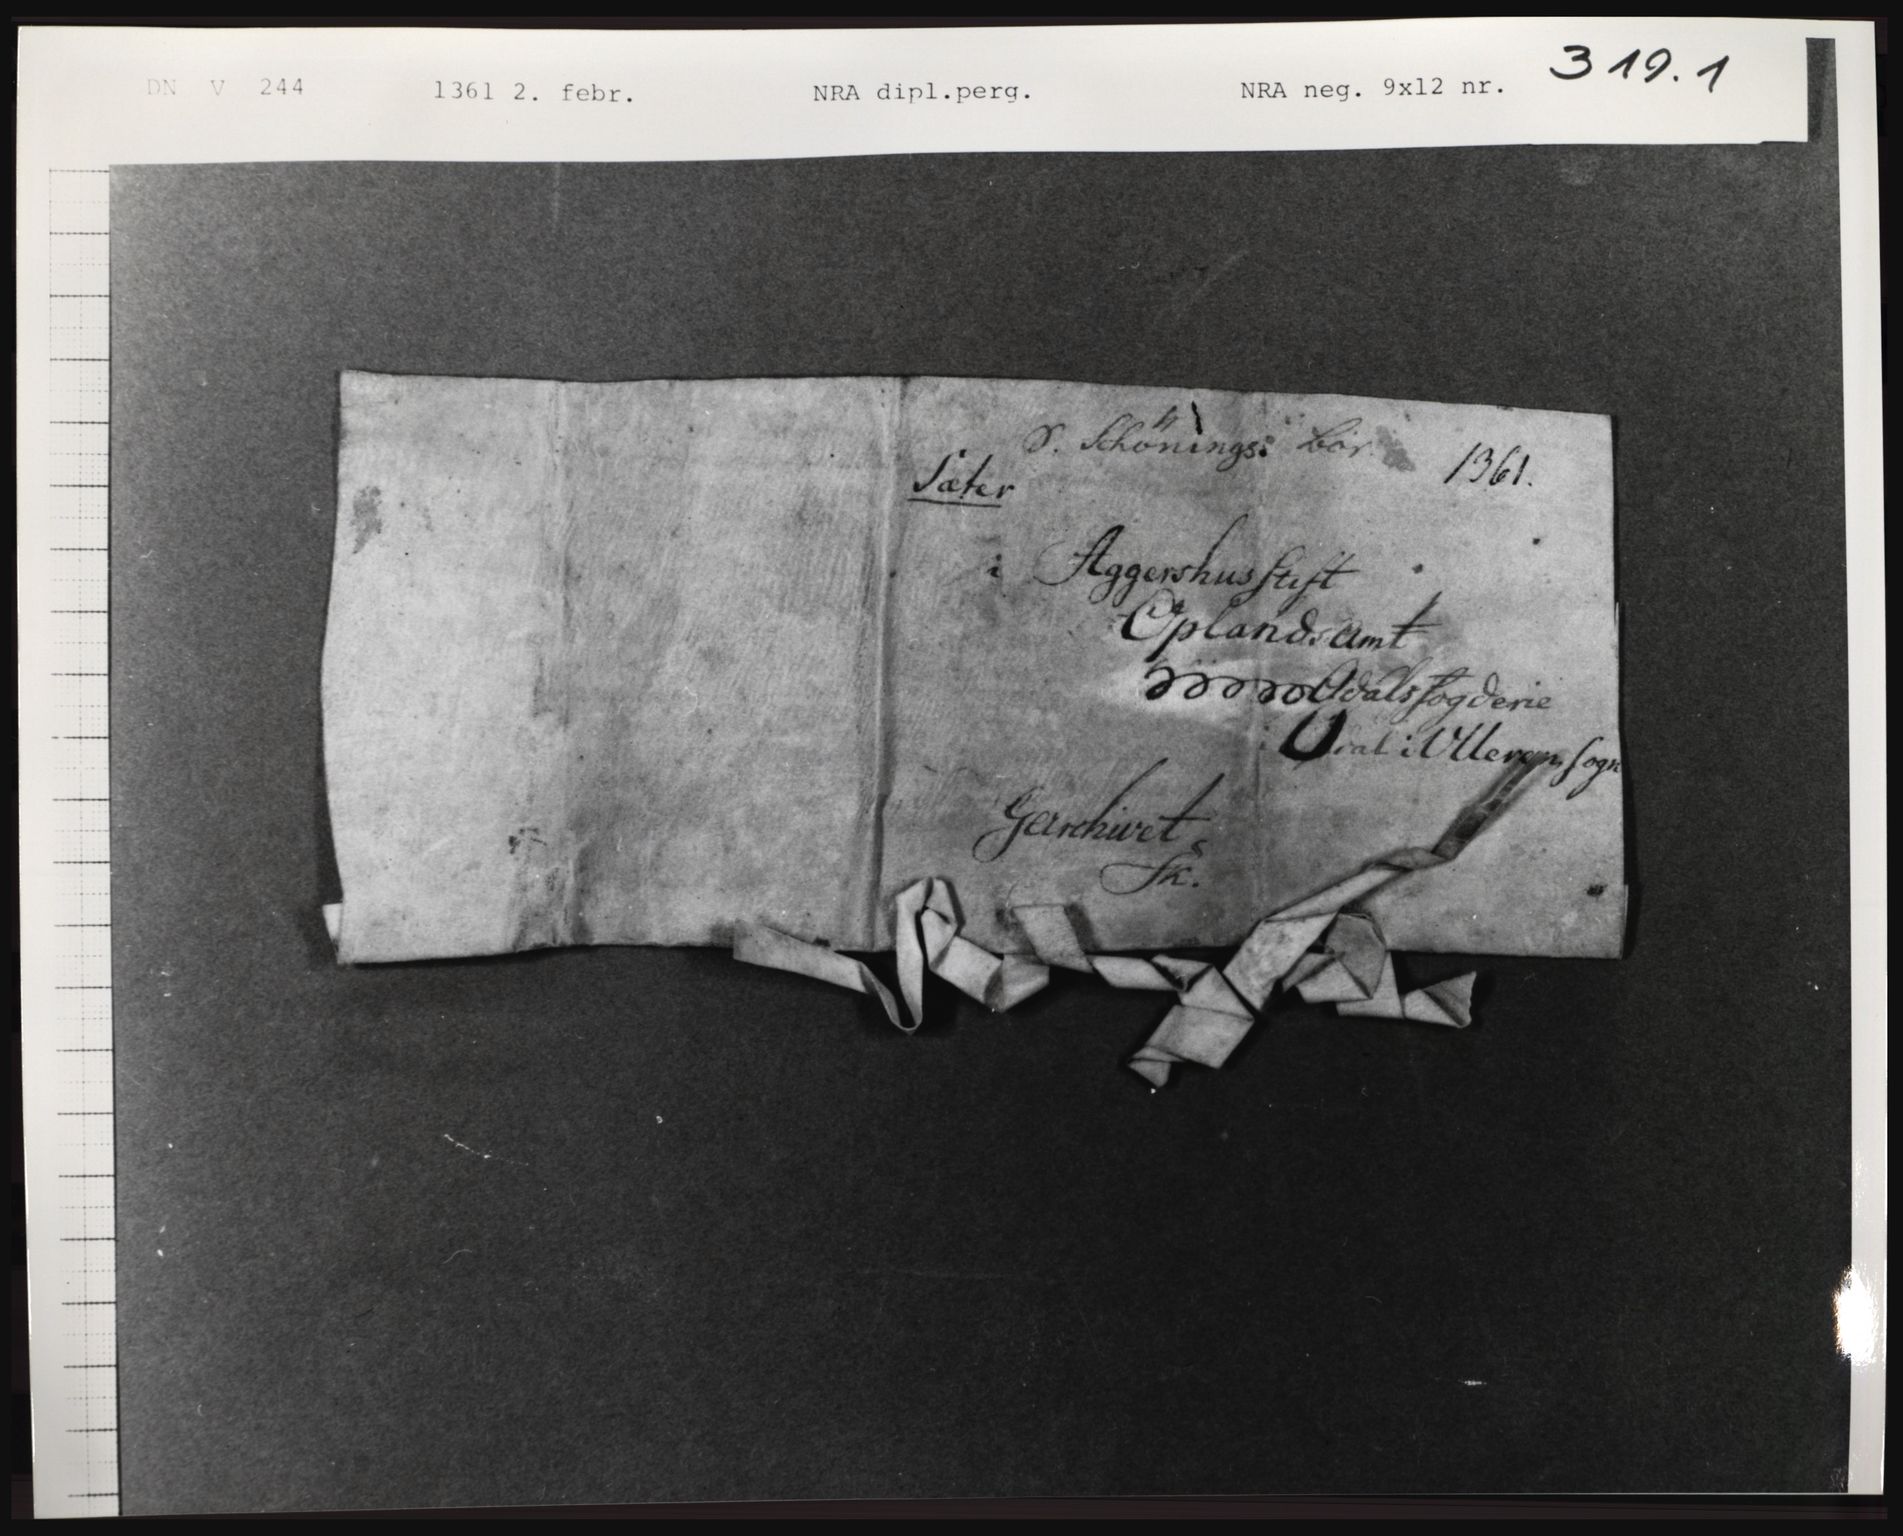 DN V 244 1361 2. febr. NRA dipl.perg. NRA neg. 9x12 nr. 319.1
S. Schönings: 1361.
Sæter
i Aggershus stift
Oplands amt
Odals fogderie
i Odal i Ulleren sogn
Gearchivet